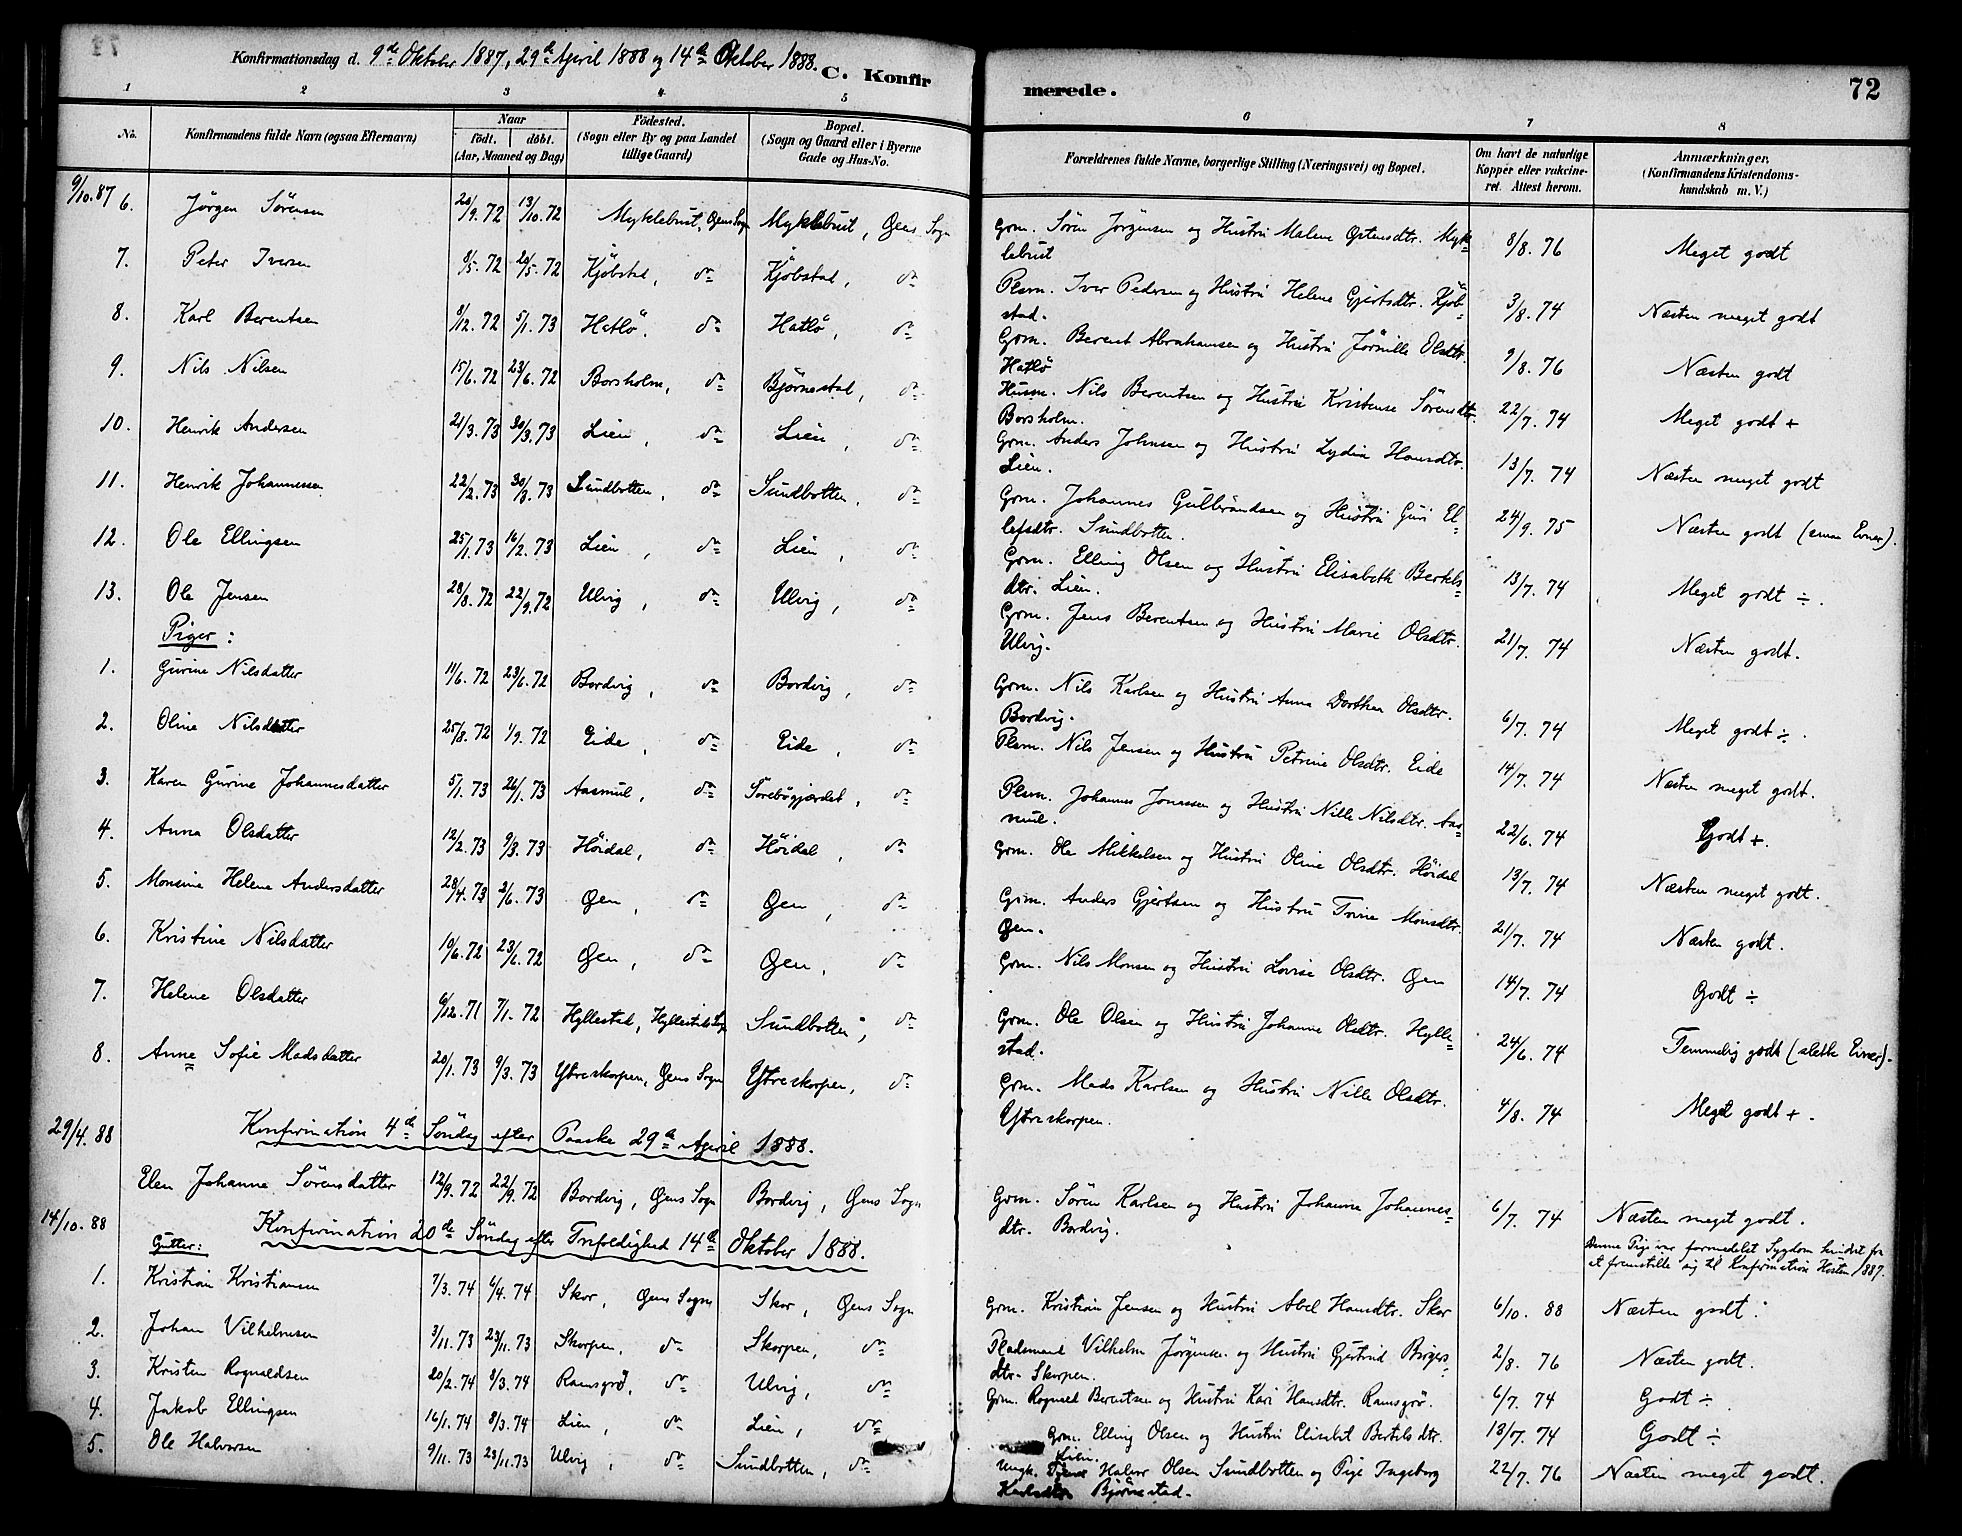 Konfirmationsdag d. 9de Oktober 1887, 29de April 1888 og 14de Oktober 1888. C. Konfir
merede. 72
1 2 3 4 5 6 7 8
No. Konfirmandens fulde Navn (ogsaa Efternavn) Naar födt. döbt. (Aar, Maaned og Dag) Födested. (Sogn eller By og paa Landet tillige Gaard) Bopæl. (Sogn og Gaard eller i Byerne Gade og Hus-No. Forældrenes fulde Navne, borgerlige Stilling (Næringsvei) og Bopæl. Om havt de naturlige Kopper eller vakcineret. Attest herom. Anmærkninger, (Konfirmandens Kristendomskundskab m. V.)
9/10.87 6. Jörgen Sörensen 20/9.72 13/10.72 Myklebust, Øens Sogn Myklebust, Øens Sogn Grm. Sören Jörgensen og Hustru Malene Ostensdtr. Myk= 8/8. 76 Meget godt
lebust
7. Peter Iversen 8/5.72 20/5.72 Kjöbstad, do Kjöbstad, do Plsm. Iver Pedersen og Hustru Helene Gjertsdtr. Kjöb= 3/8. 74 Næsten meget godt
stad.
8. Karl Berentsen 8/12.72 5/1.73 Hatlö, do Hatlö, do Grm. Berent Abrahamsen og Hustru Jörnille Olsdtr. 9/8. 76 Næsten godt
Hatlö
9. Nils Nilsen 15/6.72 23/6.72 Borsholm, do Björnestad, do Husm. Nils Berentsen og Hustru Kristense Sörensdtr. 22/7. 74 Meget godt +
Borsholm.
10. Henrik Andersen 21/3.73 30/3.73 Lien, do Lien, do Grm. Anders Johnsen og Hustru Lydia Hansdtr. 13/7. 74 Næsten meget godt
Lien.
11. Henrik Johannessen 22/2.73 30/3.73 Sundbotten, do Sundbotten, do Grm. Johannes Gulbrandsen og Hustru Guri El= 24/9. 75 Næsten godt (smaa Evner).
lefsdtr. Sundbotten.
12. Ole Ellingsen 25/1.73 16/2.73 Lien, do Lien, do Grm. Elling Olsen og Hustru Elisabeth Bertels= 13/7. 74 Meget godt ÷.
dtr. Lien.
13. Ole Jensen 28/8.72 22/9.72 Ulvig, do Ulvig, do Grm. Jens Berentsen og Hustru Marie Olsdtr. 21/7. 74 Næsten godt.
Ulvig.
Piger:
1. Gurine Nilsdatter 11/6.72 23/6.72 Bordvig, do Bordvig, do Grm. Nils Karlsen og Hustru Anna Dorthea Olsdtr. 6/7. 74 Meget godt ÷.
Bordvig.
2. Oline Nilsdatter 25/8.72 1/9.72 Eide, do Eide, do Plsm. Nils Jensen og Hustru Petrine Olsdtr. Eide 14/7. 74 Næsten meget godt.
3. Karen Gurine Johannesdatter 5/1.73 26/1.73 Aasmul, do Sörebögjærdet, do Plsm. Johannes Jonassen og Hustru Nille Nilsdtr. Aas= 22/6. 74 Godt +.
mul.
4. Anna Olsdatter 12/2.73 9/3.73 Höidal, do Höidal, do Grm. Ole Mikkelsen og Hustru Oline Olsdtr. Höidal 13/7. 74 Næsten meget godt.
5. Monsine Helene Andersdatter 28/4.73 2/6.73 Øen, do Øen, do Grm. Anders Gjertsen og Hustru Trine Monsdtr. 21/7. 74 Næsten godt.
Øen.
6. Kristine Nilsdatter 10/6.72 23/6.72 Øen, do Øen, do Grm. Nils Monsen og Hustru Lovise Olsdtr. Øen 14/7. 74 Godt ÷
7. Helene Olsdatter 6/12.71 7/1.72 Hyllestad, Hyllestads Sogn Sundbotten, do Grm. Ole Olsen og Hustru Johanne Olsdtr. Hylle= 24/6. 74 Temmelig godt (slette Evner).
stad.
8. Anne Sofie Madsdatter 20/1.73 9/3.73 Ytreskorpen, Øens Sogn Ytreskorpen, do Grm. Mads Karlsen og Hustru Nille Olsdtr. 4/8. 74 Meget godt +.
Ytreskorpen.
29/4.88 Konfirmation 4de Söndag efter Paaske 29de April 1888.
Elen Johanne Sörensdatter 12/9.72 22/9.72 Bordvig, Øens Sogn Bordvig, Øens Sogn Grm. Sören Karlsen og Hustru Johanne Johannes= 6/7. 74 Næsten meget godt.
dtr. Bordvig.
Denne Pige var formedelst Sygdom hindret fra
at fremstille sig til Konfirmation Hösten 1887.
14/10.88 Konfirmation 20de Söndag efter Trefoldighed 14de Oktober 1888.
Gutter:
1. Kristian Kristiansen 7/3.74 6/4.74 Skor, Øens Sogn Skor, Øens Sogn Grm. Kristian Jensen og Hustru Abel Hansdtr. Skor 6/10. 88 Næsten godt.
2. Johan Vilhelmsen 3/11.73 23/11.73 Skorpen, do Skorpen, do Pladsmand Vilhelm Jörgensen og Hustru Gjertrud Birgers= 2/8. 76 Næsten godt.
dtr. Skorpen.
3. Kristen Rognaldsen 20/2.74 8/3.74 Ramsgrö, do Ulvig, do Grm. Rognald Berentsen og Hustru Kari Hansdtr. Ramsgrö. 6/7. 74 Godt ÷
4. Jakob Ellingsen 16/1.74 8/3.74 Lien, do Lien, do Grm. Elling Olsen og Hustru Elisabet Bertelsdtr. 13/7. 74 Godt ÷
Lien.
5. Ole Halvorsen 9/11.73 23/11.73 Ulvig, do Sundbotten, do Ungk. Halvor Olsen Sundbotten og Pige Ingeborg 22/7. 76 Næsten meget godt.
Karlsdtr. Björnestad.